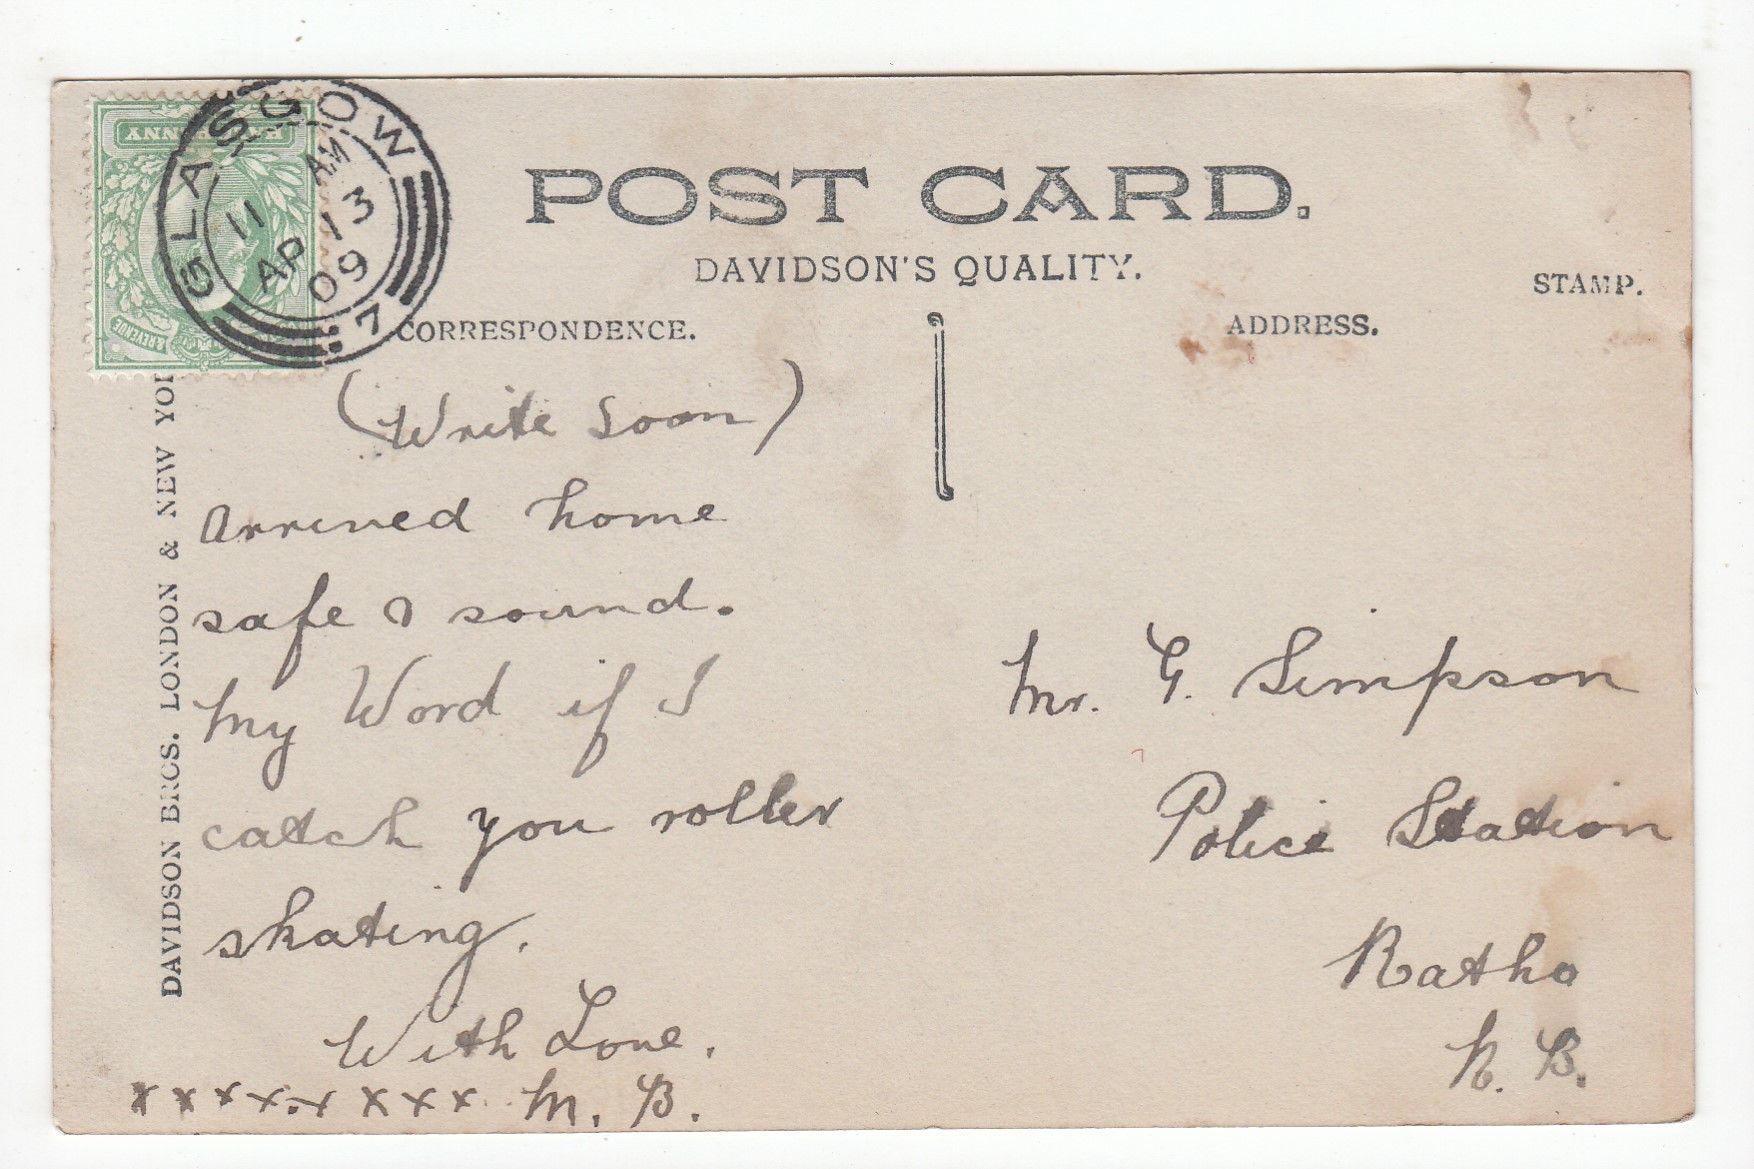 POST CARD.
DAVIDSON'S QUALITY.
STAMP.
CORRESPONDENCE.
ADDRESS.
GLASGOW
11 AM
AP 13
09
7
& REVENUE
DAVIDSON BROS. LONDON & NEW YOR
(Write Soon)
Arrived home
safe & sound.
My Word if I
catch you roller
skating.
With Love.
x x x x x x x x M. B.
Mr. G. Simpson
Police Station
Ratho
N. B.